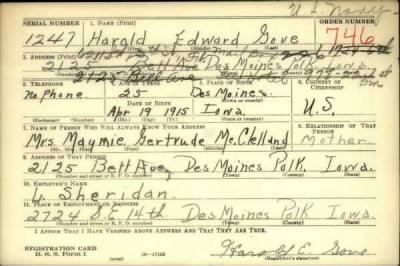 U.S. Navy
SERIAL NUMBER 1. NAME (Print) ORDER NUMBER
1247 Harold Edward Gove 746
(First) (Middle) (Last)
2. ADDRESS (Print)
2125 Bell Ave Des Moines Polk Iowa
2125 Bell Ave
3. TELEPHONE 4. AGE IN YEARS 5. PLACE OF BIRTH 6. COUNTRY OF CITIZENSHIP
No Phone. 25 Des Moines
DATE OF BIRTH (Town or county)
Apr 19 1915 Iowa. U.S.
(Exchange) (Number) (Mo.) (Day) (Yr.) (State or country)
7. NAME OF PERSON WHO WILL ALWAYS KNOW YOUR ADDRESS 8. RELATIONSHIP OF THAT PERSON
Mrs Maymie Gertrude McClelland Mother.
(Mr., Mrs., Miss) (First) (Middle) (Last)
9. ADDRESS OF THAT PERSON
2125 Bell Ave, Des Moines Polk. Iowa.
(Number and street or R. F. D. number) (Town) (County) (State)
10. EMPLOYER'S NAME
Sheridan.
11. PLACE OF EMPLOYMENT OR BUSINESS
2724 S.E. 14th Des Moines Polk Iowa.
(Number and street or R. F. D. number) (Town) (County) (State)
I AFFIRM THAT I HAVE VERIFIED ABOVE ANSWERS AND THAT THEY ARE TRUE.
REGISTRATION CARD
D. S. S. Form 1 Harold E. Gove
(Registrant's signature)